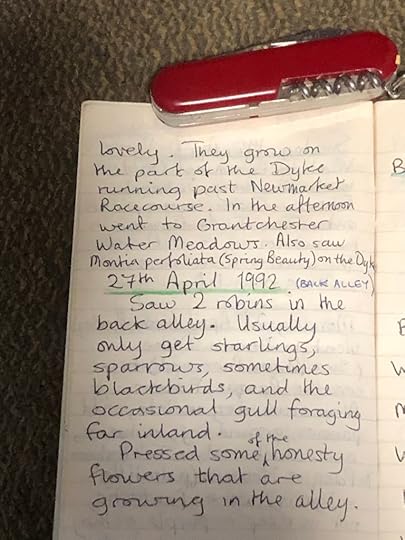 lovely. They grow on
the part of the Dyke
running past Newmarket
Racecourse. In the afternoon
went to Grantchester
Water Meadows. Also saw
Montia perfoliata (Spring Beauty) on the Dyke
27th April 1992. (BACK ALLEY)
Saw 2 robins in the
back alley. Usually
only get starlings,
sparrows, sometimes
blackbirds, and the
occasional gull foraging
far inland.
Pressed some of the honesty
flowers that are
growing in the alley.